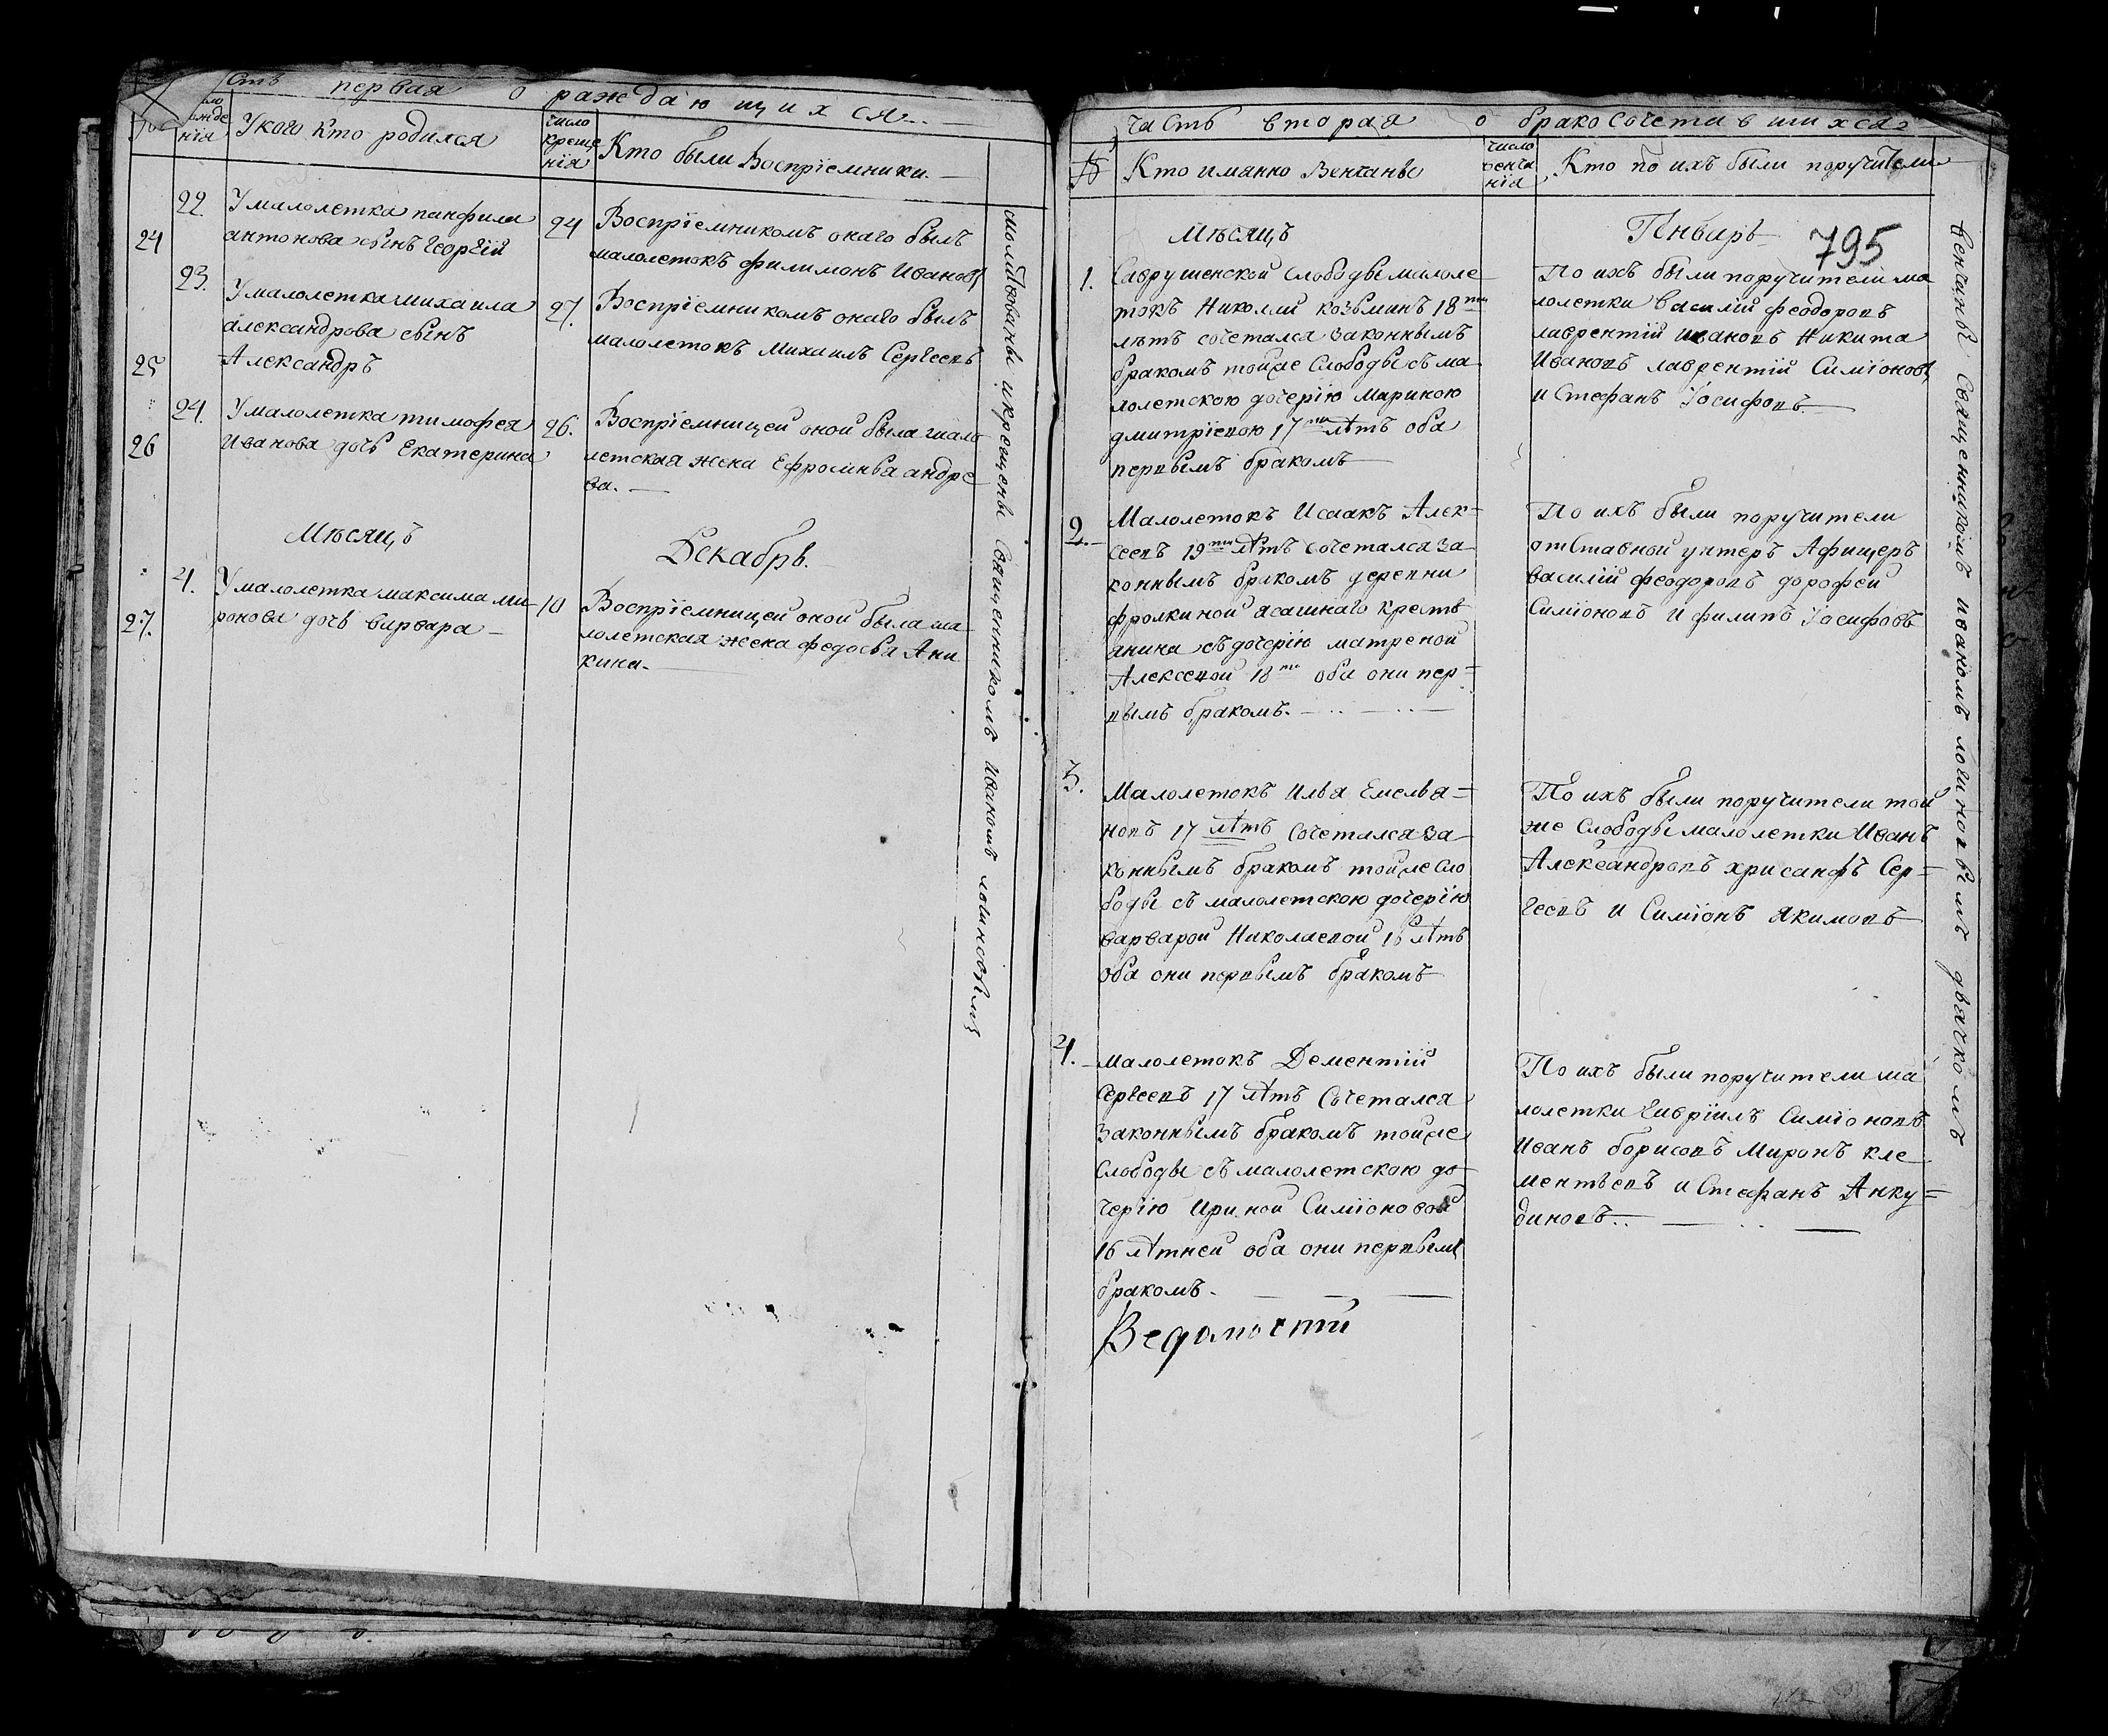 сть первая о раждающихся
№
ло
ожде
нія
У кого кто родился
число
креще
нія
Кто были Воспріемники.
22. У малолетка панфила
24 антонова сынъ Георгій
24 Воспріемникомъ онаго былъ
малолетокъ филимонъ Ивановъ
23. У малолетка михаила
александрова сынъ
25 Александръ
27. Воспріемникомъ онаго былъ
малолетокъ Михаилъ Сергеевъ
24. У малолетка тимофея
26 Иванова дочь Екатерина
26. Воспріемницей оной была мало
летская жена Ефросинья андре
ва.
Мѣсяцъ Декабрь.
4. У малолетка максима ми
27. ронова дочь варвара
10 Воспріемницей оной была ма
лолетская жена федосья Ани
кина.
молитвованы и крещены Священникомъ Иваномъ логиновымъ
часть вторая о бракосочетавшихся
№ Кто имянно Венчаны
число
венча
нія
Кто по ихъ были поручители
Мѣсяцъ Генварь
795
1. Саврушенской слободы малоле
токъ Николай козьминъ 18ти
лѣтъ сочетался законнымъ
бракомъ тойже Слободы съ ма
лолетскою дочерію Мариною
дмитріевою 17ти лѣтъ оба
первымъ бракомъ
По ихъ были поручители ма
лолетки василій феодоровъ
лаврентій ивановъ Никита
Ивановъ лаврентій Симіоновъ
и Стефанъ Іосифовъ
2. Малолетокъ Исаакъ Алек=
сеевъ 19ти лѣтъ сочетался за
коннымъ бракомъ деревни
фролкиной ясашнаго кресть
янина съ дочерію матреной
Алексевой 18ти оба они пер=
вымъ бракомъ.
По ихъ были поручители
отставной унтеръ Афицеръ
василій феодоровъ дорофей
Симіоновъ и филипъ Іосифовъ
3. Малолетокъ Илья Емелья=
новъ 17 лѣтъ сочетался за
коннымъ бракомъ тойже Сло
боды съ малолетскою дочерію
варварой Николаевой 16 лѣтъ
оба они первымъ бракомъ
По ихъ были поручители той
же Слободы малолетки Иванъ
Александровъ хрисанфъ Сер=
геевъ и Симіонъ якимовъ
4. малолетокъ Дементій
Сергеевъ 17 лѣтъ Сочетался
законнымъ бракомъ тойже
Слободы съ малолетскою до
черію Ириной Симіоновой
16 лѣтней оба они первымъ
бракомъ.
По ихъ были поручители ма
лолетки Гавріилъ Симіоновъ
Иванъ борисовъ Миронъ кле
ментьевъ и Стефанъ Анку=
диновъ..
Ведомости
венчаны Священникомъ Иваномъ логиновымъ дьячкомъ